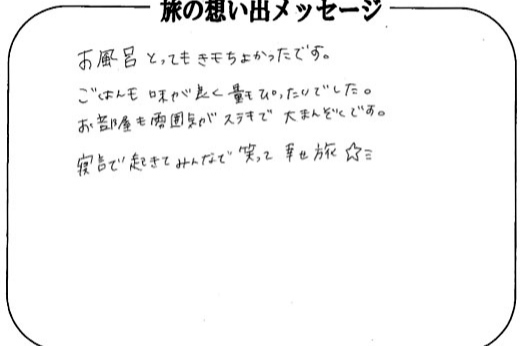 旅の想い出メッセージ
お風呂とってもきもちよかったです。
ごはんも味が良く量もぴったいでした。
お部屋も雰囲気がステキで大まんぞくです。
寝言で起きてみんなで笑って幸せ旅☆ミ